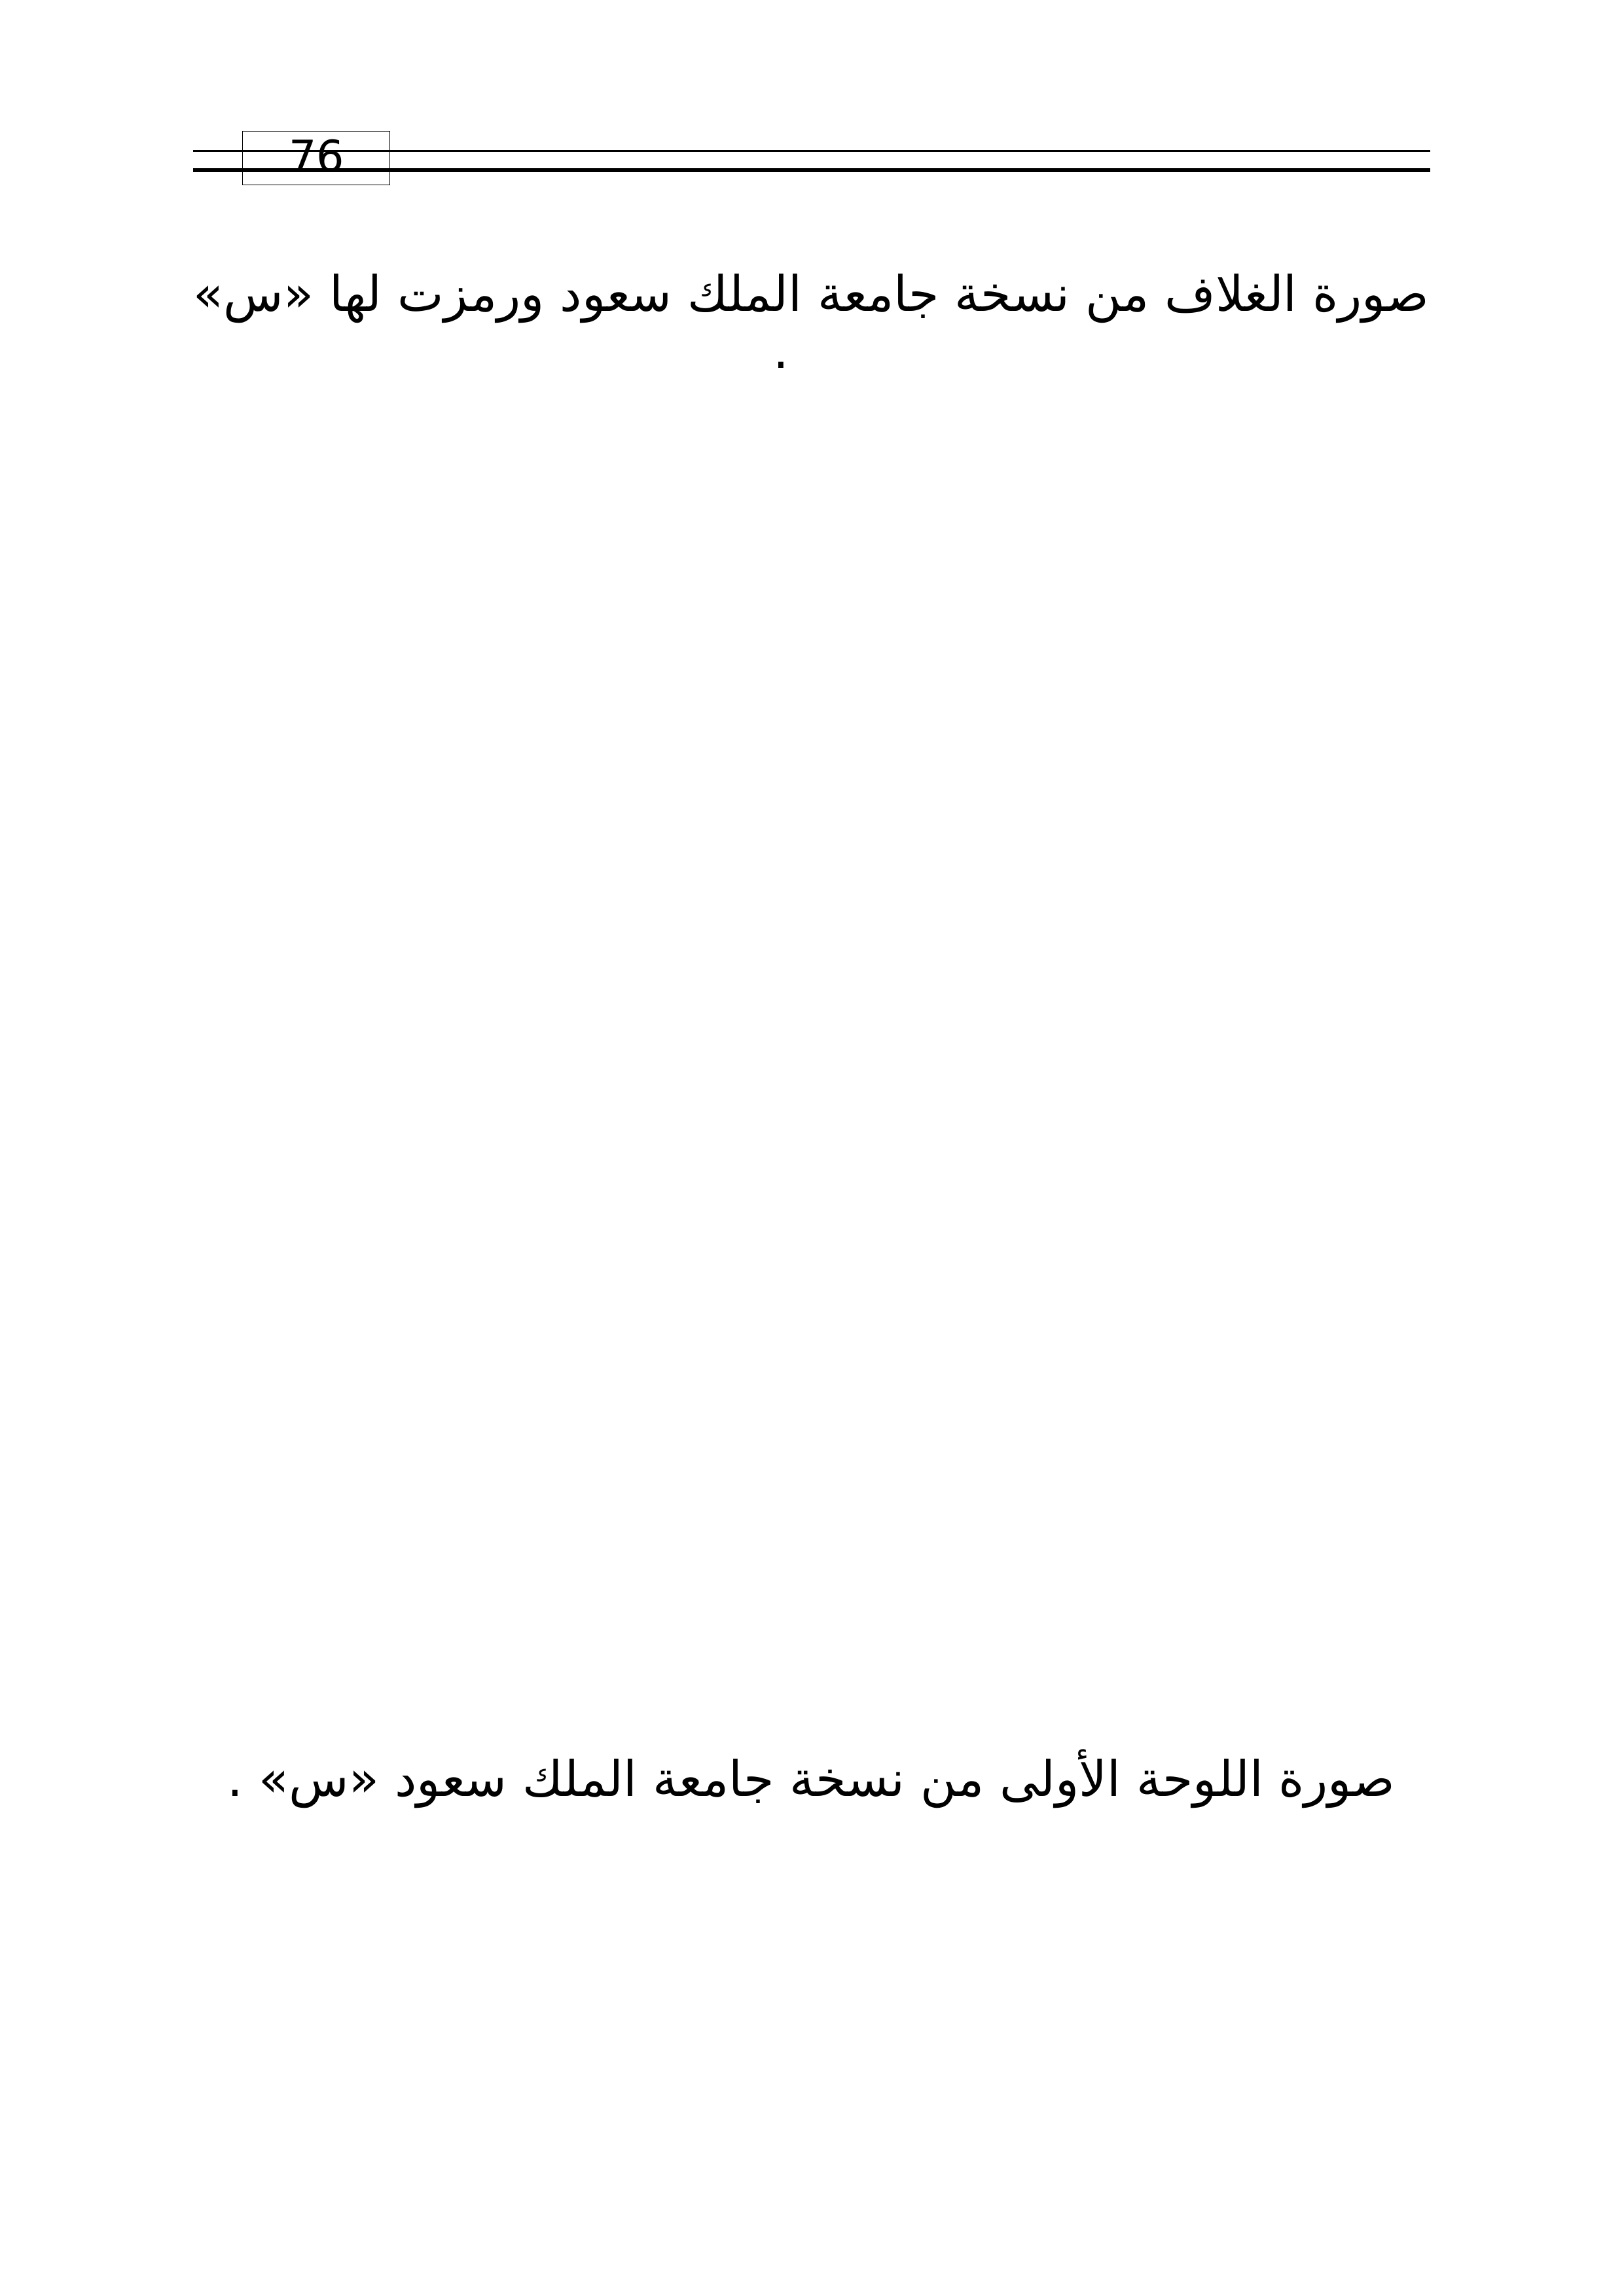 76
صورة الغلاف من نسخة جامعة الملك سعود ورمزت لها «س»
.
صورة اللوحة الأولى من نسخة جامعة الملك سعود «س» .